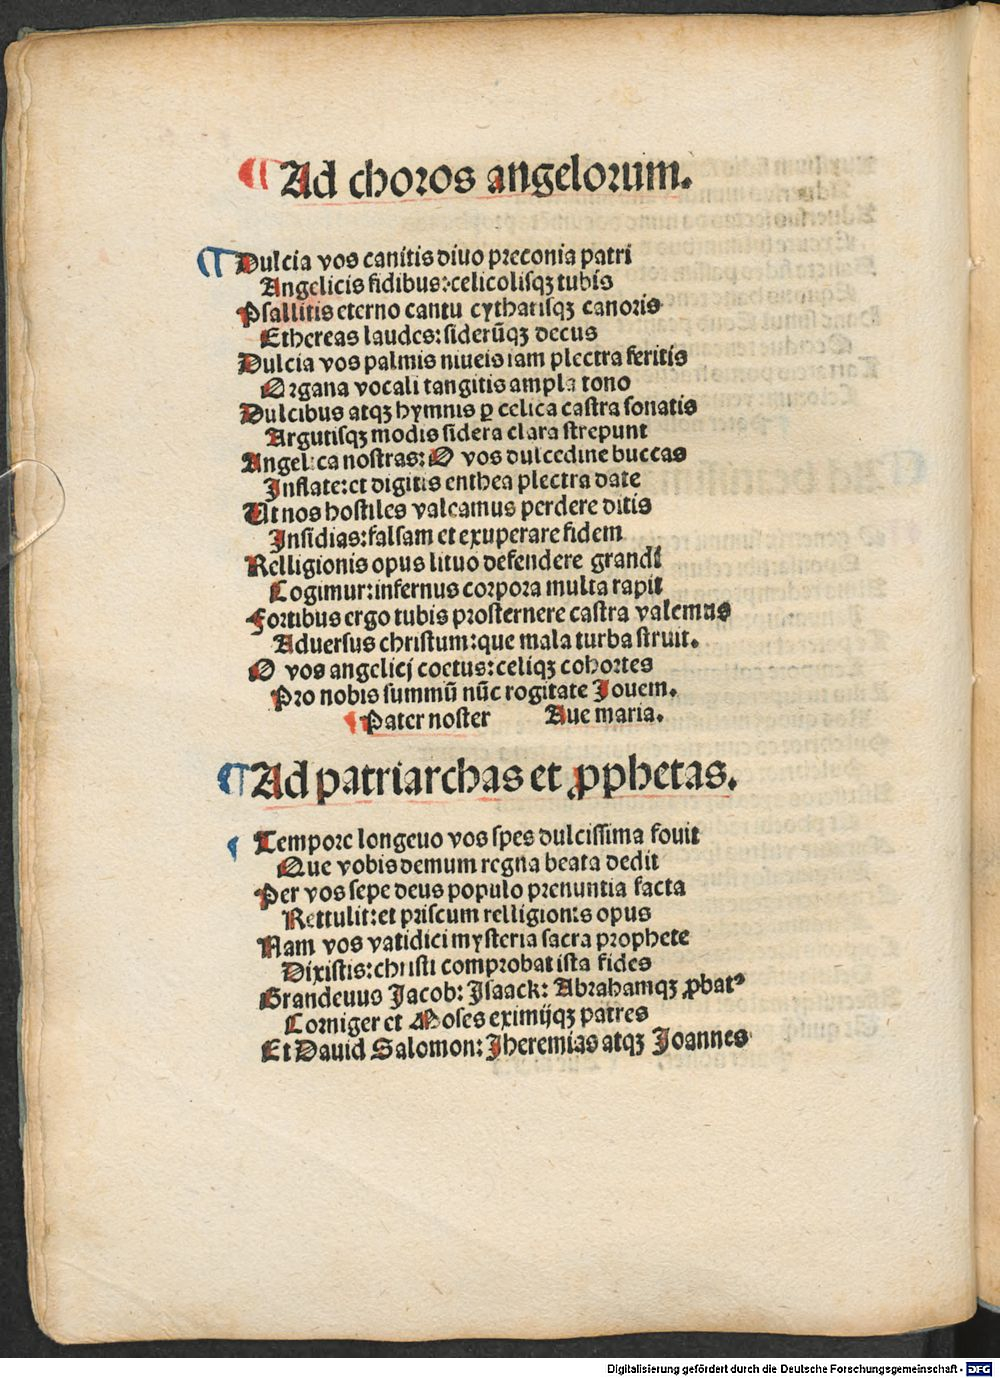 ¶ Ad choros angelorum.
¶ Dulcia vos canitis diuo preconia patri
Angelicis fidibus: celicolisqꝫ tubis
Psallitis eterno cantu cytharisqꝫ canoris
Ethereas laudes: siderūqꝫ decus
Dulcia vos palmis niueis iam plectra feritis
Organa vocali tangitis ampla tono
Dulcibus atqꝫ hymnis ꝑ celica castra sonatis
Argutisqꝫ modis sidera clara strepunt
Angelica nostras: O vos dulcedine buccas
Inflate: et digitis enthea plectra date
Ut nos hostiles valeamus perdere ditis
Insidias: falsam et exuperare fidem
Relligionis opus lituo defendere grandi
Cogimur: infernus corpora multa rapit
Fortibus ergo tubis prosternere castra valemus
Aduersus christum: que mala turba struit.
O vos angelicj coetus: celiqꝫ cohortes
Pro nobis summū nūc rogitate Jouem.
¶ Pater noster Aue maria.
¶ Ad patriarchas et ꝓphetas.
¶ Tempore longeuo vos spes dulcissima fouit
Que vobis demum regna beata dedit
Per vos sepe deus populo prenuntia facta
Rettulit: et priscum relligionis opus
Nam vos vatidici mysteria sacra prophete
Dixistis: christi comprobat ista fides
Grandeuus Jacob: Isaack: Abrahamqꝫ ꝓbatꝰ
Corniger et Moses eximijqꝫ patres
Et Dauid Salomon: Jheremias atqꝫ Joannes
Digitalisierung gefördert durch die Deutsche Forschungsgemeinschaft - DFG